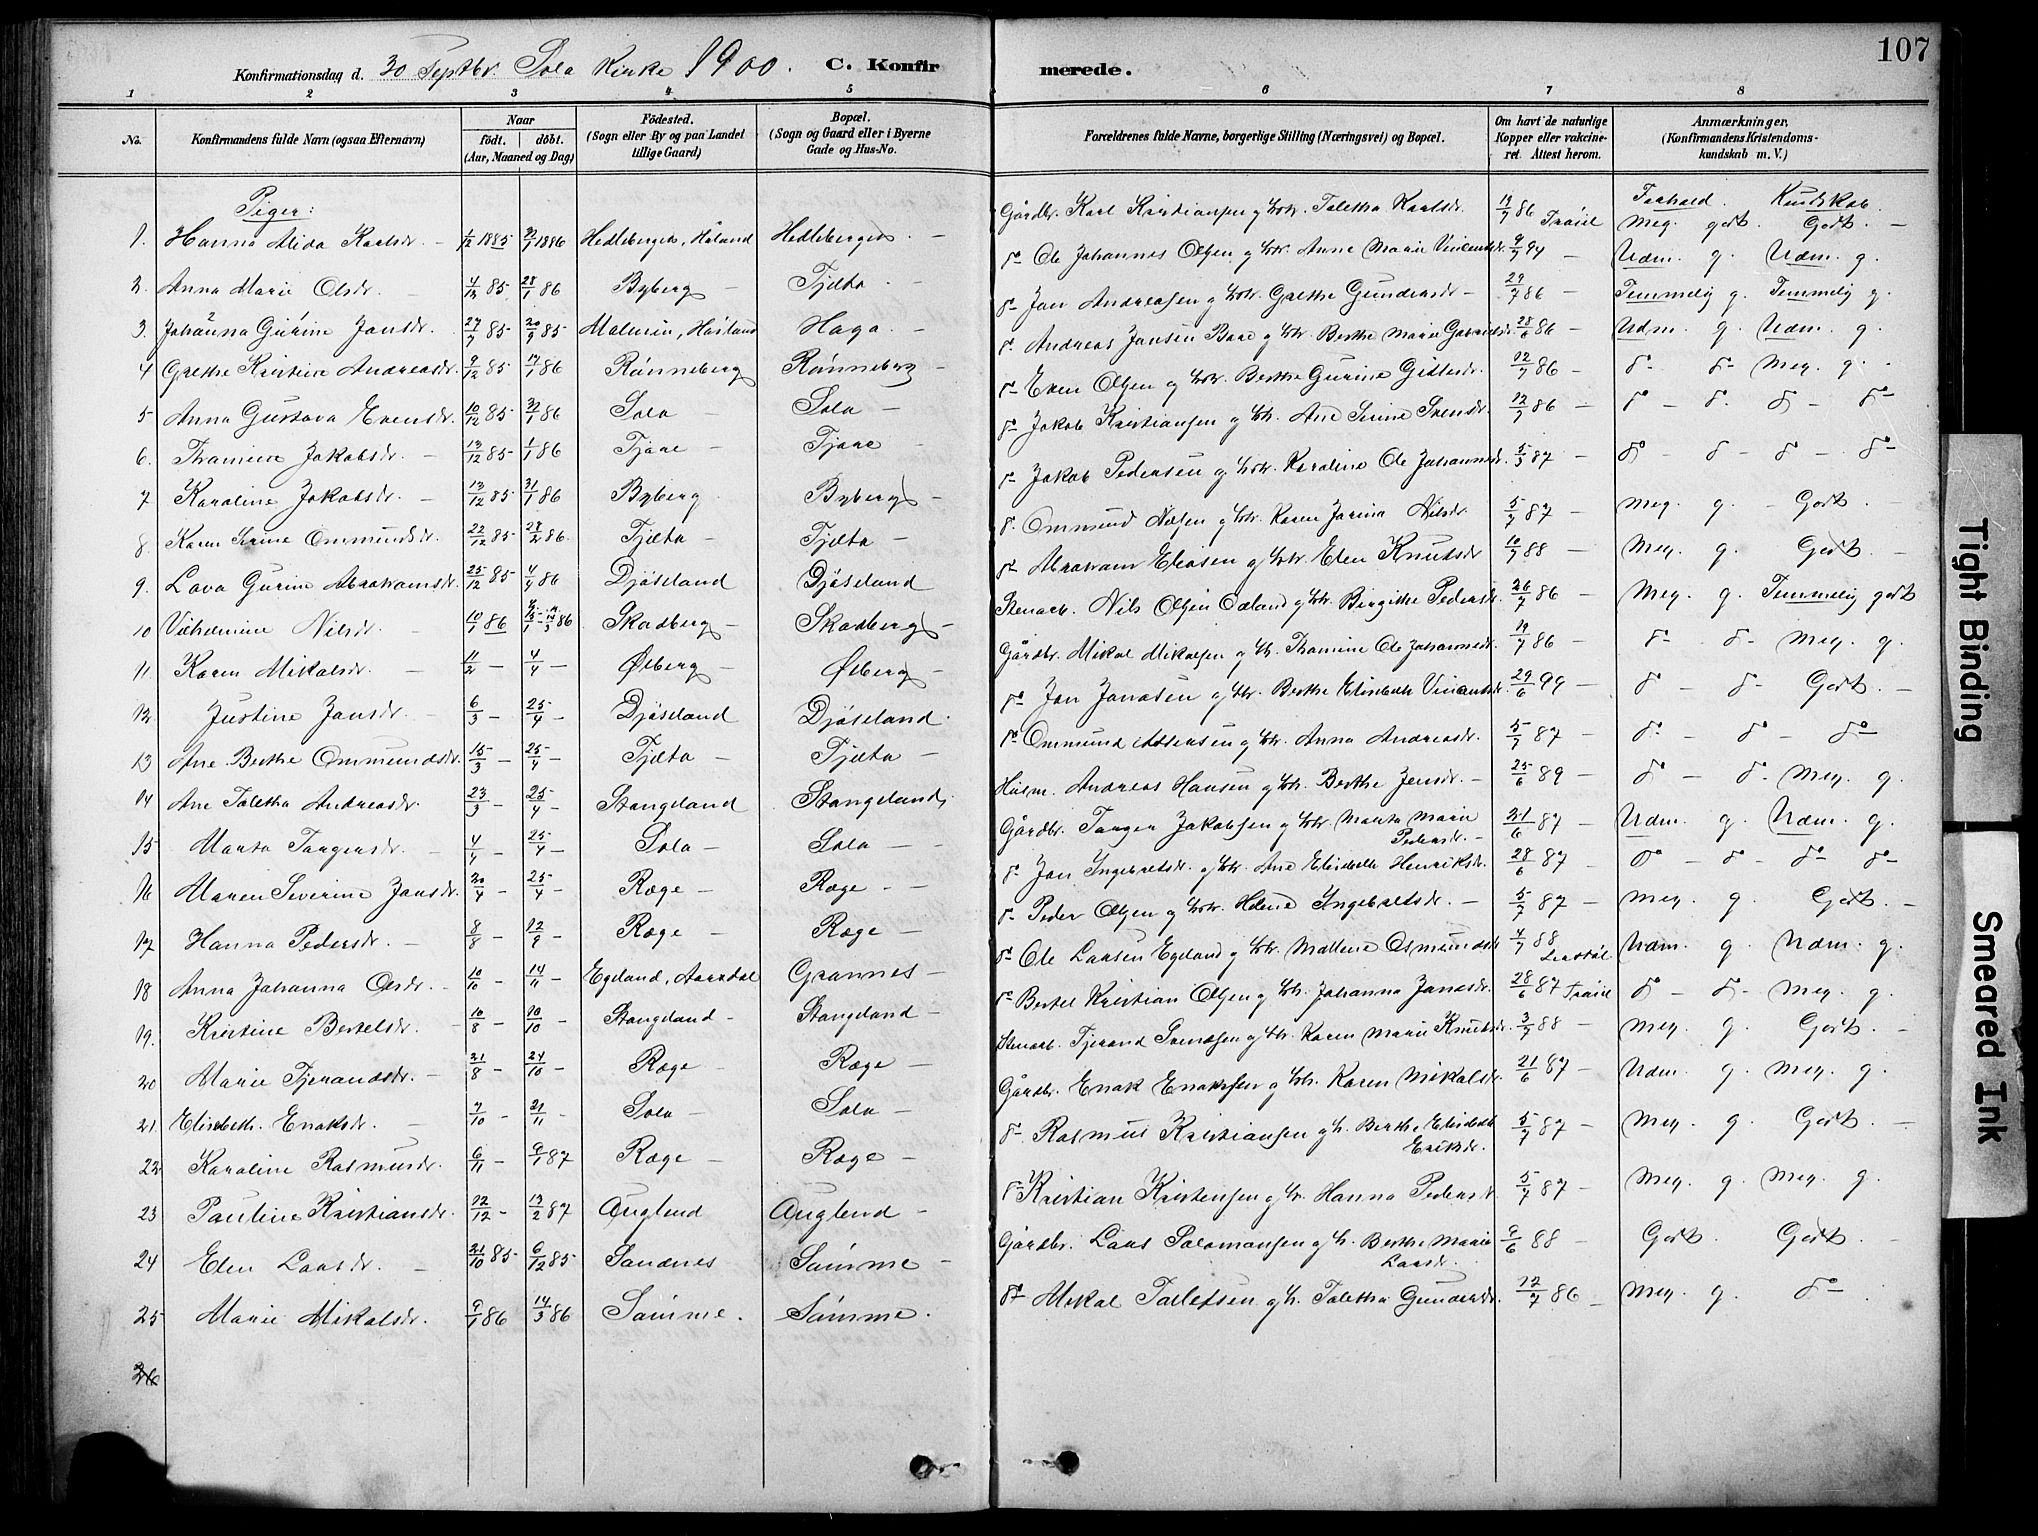 107
Konfirmationsdag d. 30 Septbr. Sola Kirke 1900. C. Konfirmerede.
1 2 3 4 5 6 7 8
No. Konfirmandens fulde Navn (ogsaa Efternavn) Naar født. døbt. (Aar, Maaned og Dag) Fødested. (Sogn eller By og paa Landet tillige Gaard) Bopæl. (Sogn og Gaard eller i Byerne Gade og Hus-No. Forældrenes fulde Navne, borgerlige Stilling (Næringsvei) og Bopæl. Om havt de naturlige Kopper eller vakcineret. Attest herom. Anmærkninger, (Konfirmandens Kristendomskundskab m. V.)
Piger: Forhold Kundskab.
1. Hanna Alida Karlsdr. 1/12 1885 31/1 1886 Hedleberget, Håland Hedleberget Gårdbr. Karl Kristiansen g Hstr. Taletha Karlsdr. 19/7 86 Meg. godt. Godt.
2. Anna Marie Olsdr. 4/12 85 28/1 86 Byberg Tjelta do Ole Johannes Olsen g Hstr. Anne Marie Vincentsdr. 9/7 94 Udm. g. Udm. g.
3. Johanna Gurine Jansdr. 27/7 85 20/9 85 Malmin, Høiland Haga do Jan Andreasen g Hstr. Grethe Gundersdr. 29/7 86 Temmelig g. Temmelig g.
4 Grethe Kristine Andreasdr. 9/12 85 17/1 86 Rønneberg Rønneberg do Andreas Jansen g Hstr. Berthe Marie 28/6 86 Udm. g. Udm. g.
5 Anna Gustava Evensdr. 10/12 85 31/1 86 Sola Sola do Even Olsen g Hstr. Berthe Gurine 12/7 86 do do Meg. g.
6. Thomine Jakobsdr. 13/12 85 1/1 86 Tjore Tjore do Jakob Kristiansen g Hstr. Ane Serine Svensdr. 12/7 86 do do do do
7 Karoline Jakobsdr. 13/12 85 31/1 86 Byberg Byberg do Jakob Pedersen g Hstr. Karoline Ole Johannesdr. 5/3 87 do do do do
8. Karen Serine Ommundsdr. 22/12 85 28/2 86 Tjelta Tjelta do Ommund Nilsen g Hstr. Karen Jorina Nilsdr. 5/7 87 Meg. g. Godt.
9. Lova Gurine Abrahamsdr. 25/12 85 4/4 86 Djøseland Djøseland do Abraham Eliasen g Hstr. Elen Knutsdr. 10/7 88 Meg. g. Godt
10 Vilhelmine Nilsdr. 10/1 86 Skadberg Skadberg Stenarb. Nils Olsen g Hstr. Birgithe Pedersdr. 26/7 86 Meg. g. Temmelig godt
11. Karen Mikalsdr. 11/2 4/4 Ølberg Ølberg Gårdbr. Mikal Mikalsen g H. Thomine Ole Johannesdr. 19/7 86 do do Meg. g.
12. Justine Jansdr. 6/3 25/4 Djøseland Djøseland do Jan Janasen g Hstr. Berthe Elisabeth Vincentsdr. 29/6 99 do do Godt.
13 Ane Berthe Ommundsdr. 15/3 25/4 Tjelta Tjelta do Ommund g Hstr. Anna Andreasdr. 5/7 87 do do do
14 Ane Taletha Andreasdr. 23/3 25/4 Stangeland Stangeland Husm. Andreas Hansen g Hstr. Berthe Jensdr. 25/6 89 do do Meg. g.
15 Marta Torgersdr. 4/4 25/4 Sola Sola Gårdbr. Torger Jakobsen g Hstr. Marta Marie Pedersdr. 21/6 87 Udm. g. Udm. g.
16 Maren Severine Jansdr. 20/4 25/4 Ræge Ræge do Jan Ingebretsdr. g Hstr. Ane Elisabeth Henriksdr. 28/6 87 do do do do
17. Hanna Pedersdr. 8/8 12/9 Ræge Ræge do Peder Olsen g Hstr. Helene Ingebretsdr. 5/7 87 Meg. g. Godt.
18 Anna Johanna Olsdr. 10/10 14/11 Egeland, Aardal Grannes do Ole Larsen Egeland g Hstr. Mallene Osmundsdr. 4/7 88 Udm. g. Udm. g.
19. Kristine Bertelsdr. 10/8 10/10 Stangeland Stangeland do Bertel Kristian Olsen g Hstr. Johanna Janasdr. 28/6 87 do do Meg. g.
20 Marie Tjerandsdr. 21/8 24/10 Ræge Ræge Stenarb. Tjerand g Hstr. Karen Marie Knutsdr. 3/7 88 Meg. g. Godt.
21. Elisabeth. Enoksdr. 7/10 21/11 Sola Sola Gårdbr. Enok Enoksen g Hstr. Karen Mikalsdr. 21/6 87 Udm. g. Meg. g.
22 Karoline Rasmusdr. 6/11 9/1 87 Ræge Ræge do Rasmus Kristiansen g H. Berthe Elisabeth Eriksdr. 5/7 87 Meg. g. Godt.
23 Pauline Kristiansdr. 12/12 13/2 87 Auglend Auglend do Kristian Kristensen g H. Hanna Pedersdr. 5/7 87 Meg. g. Meg. g.
24 Elen Larsdr. 21/10 85 6/12 85 Sandnes Sømme Gårdbr. Lars Salomonsen g H. Berthe Marie Larsdr. 9/6 88 Godt. Godt.
25 Marie Mikalsdr. 9/1 86 14/3 86 Sømme. Sømme. do Mikal Tollefsen g H. Taletha Gundersdr. 12/7 86 Meg. g. do
26
Tight Binding
Smeared Ink